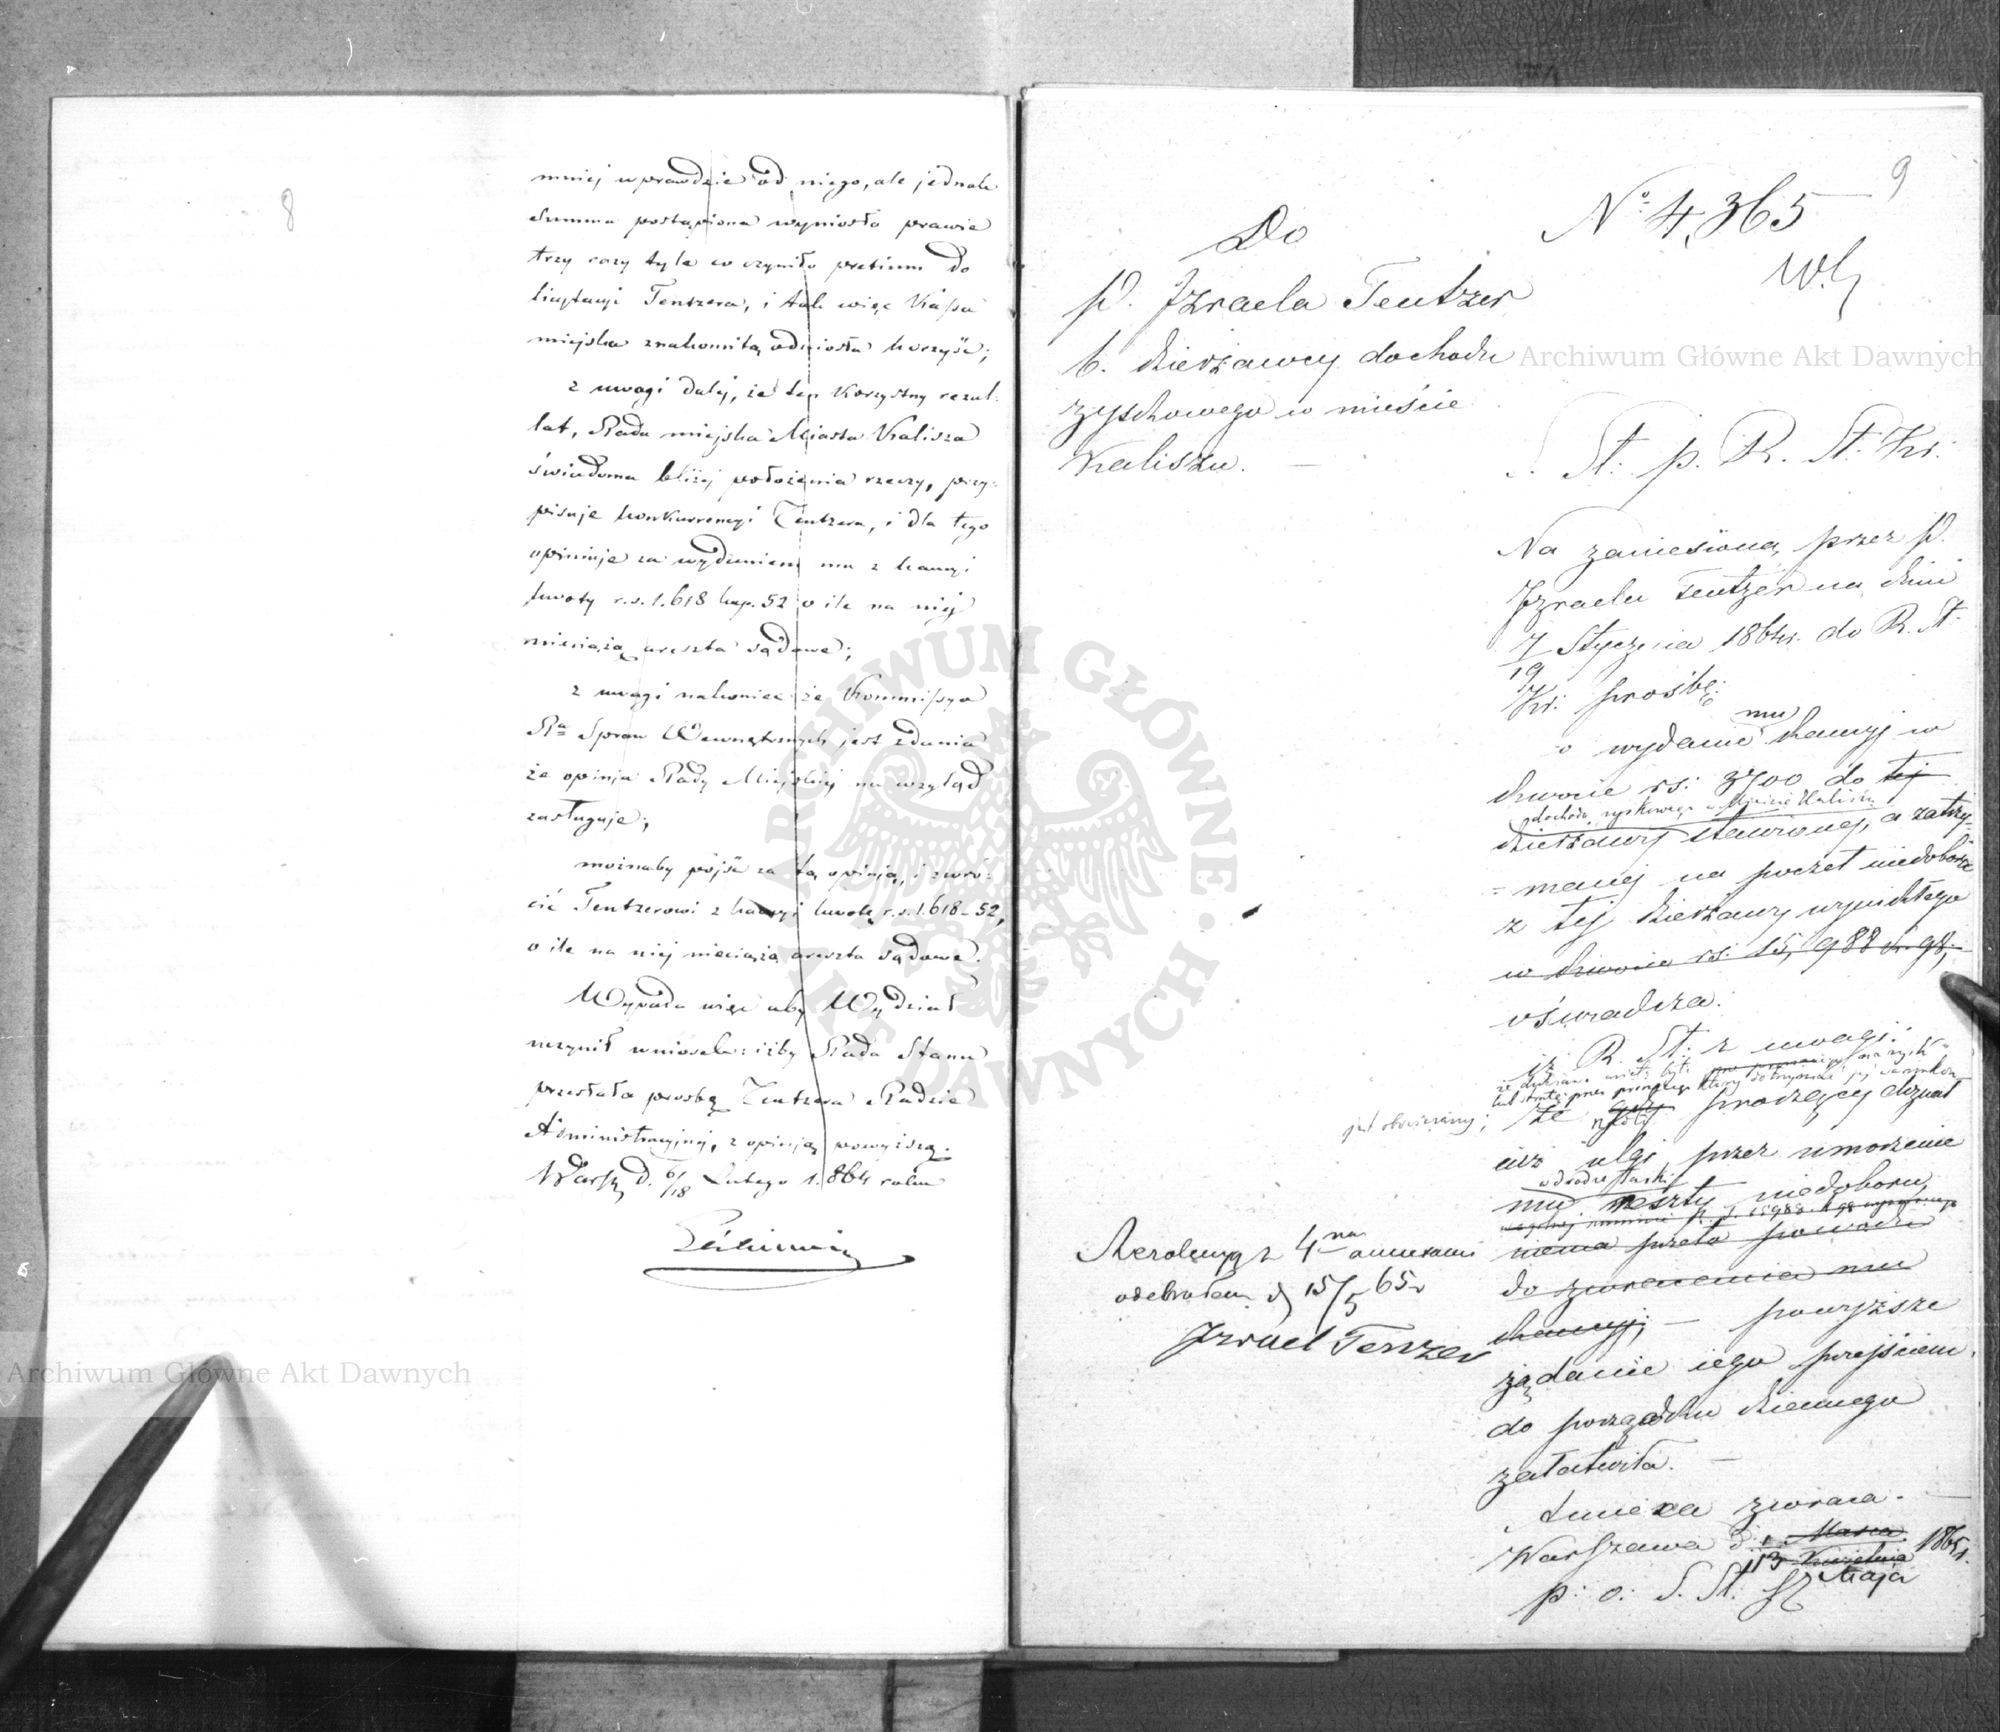 8
mniej wprawdzie od niego, ale jednak
Summa postąpiona wyniosła prawie
trzy razy tyle co czyniło pretium do
licytacyi Tentzera, i tak więc Kassa
miejska znakomitą odniosła korzyść;
z uwagi dalej, że ten korzystny rezul-
tat, Rada miejska Miasta Kalisza
świadoma bliżej położenia rzeczy, przy-
pisuje konkurrencyi Tentzera, i dla tego
opiniuje za wydaniem mu z kaucyi
kwoty r.s. 1.618 kop. 52 o ile na niej
nieciążą areszta sądowe;
z uwagi nakoniec że Kommissya
Rª Spraw Wewnętrznych jest zdania
że opinja Rady Miejskiej na wzgląd
zasługuje;
możnaby pójść za tą opinją, i zwró-
cić Tentzerowi z kaucyi kwotę r.s. 1.618-52,
o ile na niej nieciążą areszta sądowe.
Wypada więc aby Wydział
uczynił wniosek: iżby Rada Stanu
przesłała prośbę Tentzera Radzie
Administracyjnej, z opinją powyższą.
Warsz. d. 6/18 Lutego 1.864 roku
9
Nº 4,365
Do
P. Izraela Teutzer
b. dzierżawcy dochodu
zyskowego w mieście
Kaliszu. —
S. St: p. R. St. Kr.
Na zaniesioną przez P.
Izraela Teutzer na dniu
7/19 Stycznia 1864r. do R. St.
Kr. prośbę:
mu
o wydanie kaucyi w
kwocie rs: 3700 do tej
dochodu zyskowego w Mieście Kaliszu
dzierżawy stawionej, a zatrzy-
=manej na poczet niedoboru
z tej dzierżawy wynikłego
w kwocie rs: 15,988 k. 98,
oświadcza:
iż R. St. z uwagi:
jest obowiązany;
że proszący doznał
już ulgi przez umorzenie
w drodze łaski
mu reszty niedoboru,
niema przeto powodu
do zwrócenia mu
kaucyi; — powyższe
żądanie iego przejściem
do porządku dziennego
załatwiła. —
Annexa zwraca. —
Warszawa d. 1/13 Marca Kwietnia Maja 1865r.
p: o: S. St.
Rezolucyą z 4na annexami
odebrałem d 15/5 65r
Izrael Tenzer
Archiwum Główne Akt Dawnych
Archiwum Główne Akt Dawnych
ARCHIWUM GŁÓWNE · AKT DAWNYCH ·